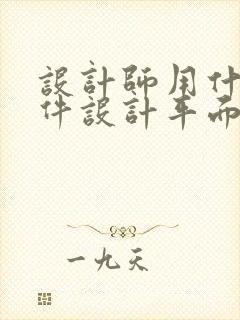 設計師用什
件設計平面
一九天